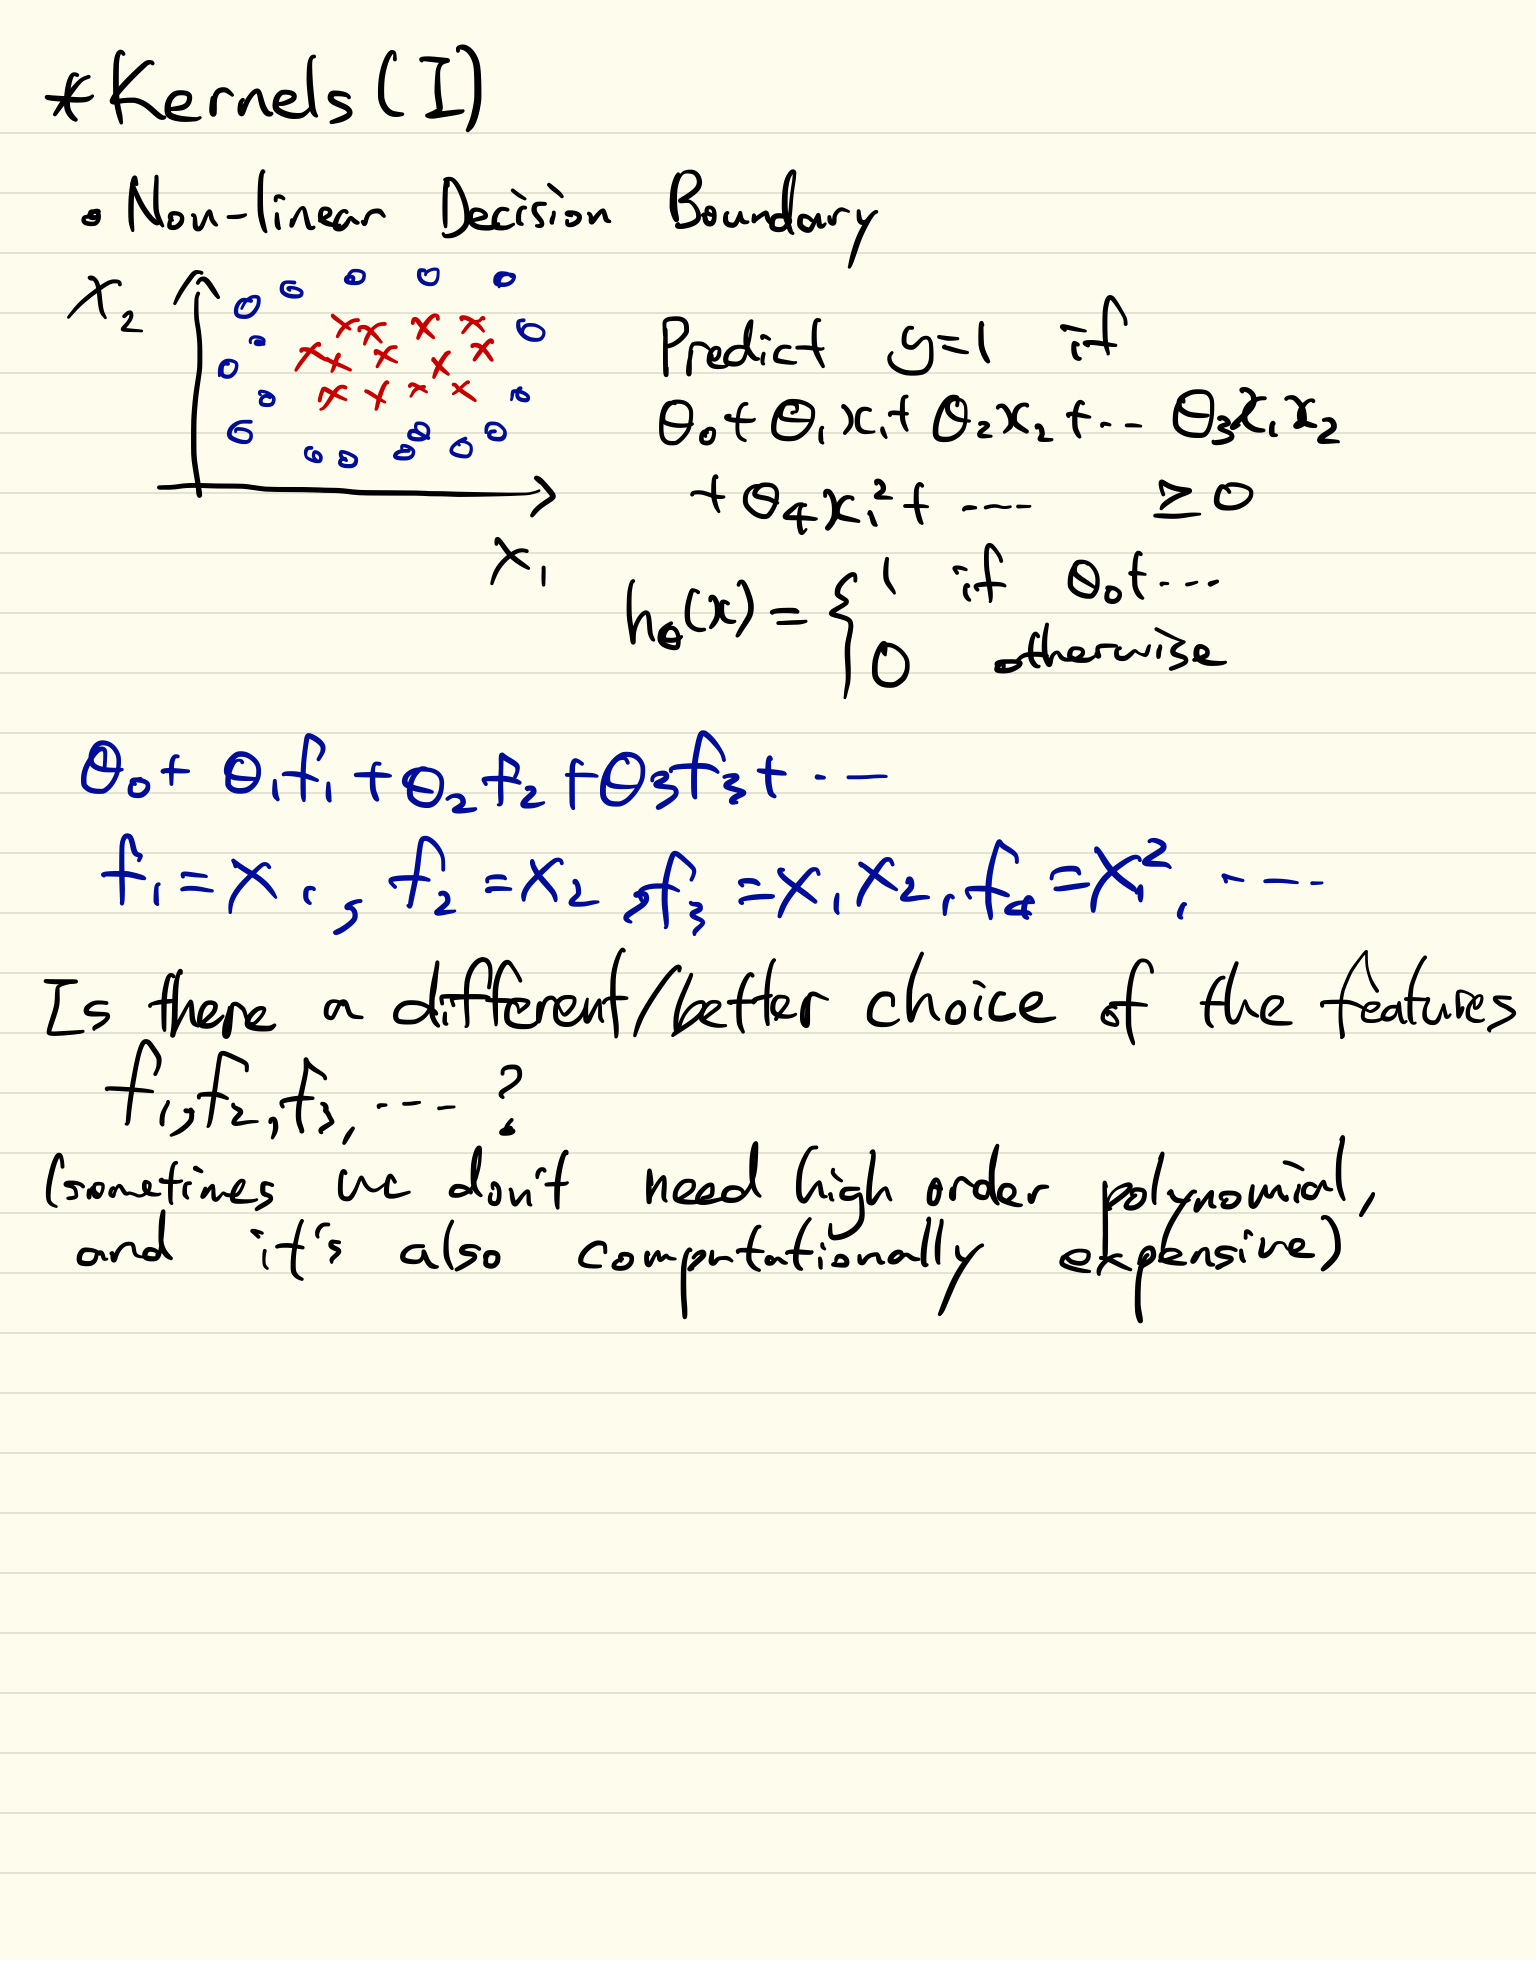 *Kernels (I)
• Non-linear Decision Boundary
x₂
x₁
Predict y=1 if
θ₀+θ₁x₁+θ₂x₂+... θ₃x₁x₂
+θ₄x₁²+ .... ≥0
hθ(x) = { 1 if θ₀+...
0 otherwise
θ₀+ θ₁f₁+θ₂f₂+θ₃f₃+ ...
f₁=x₁, f₂=x₂, f₃=x₁x₂, f₄=x₁², ....
Is there a different/better choice of the features
f₁,f₂,f₃, .... ?
(sometimes we don't need high order polynomial,
and it's also computationally expensive)